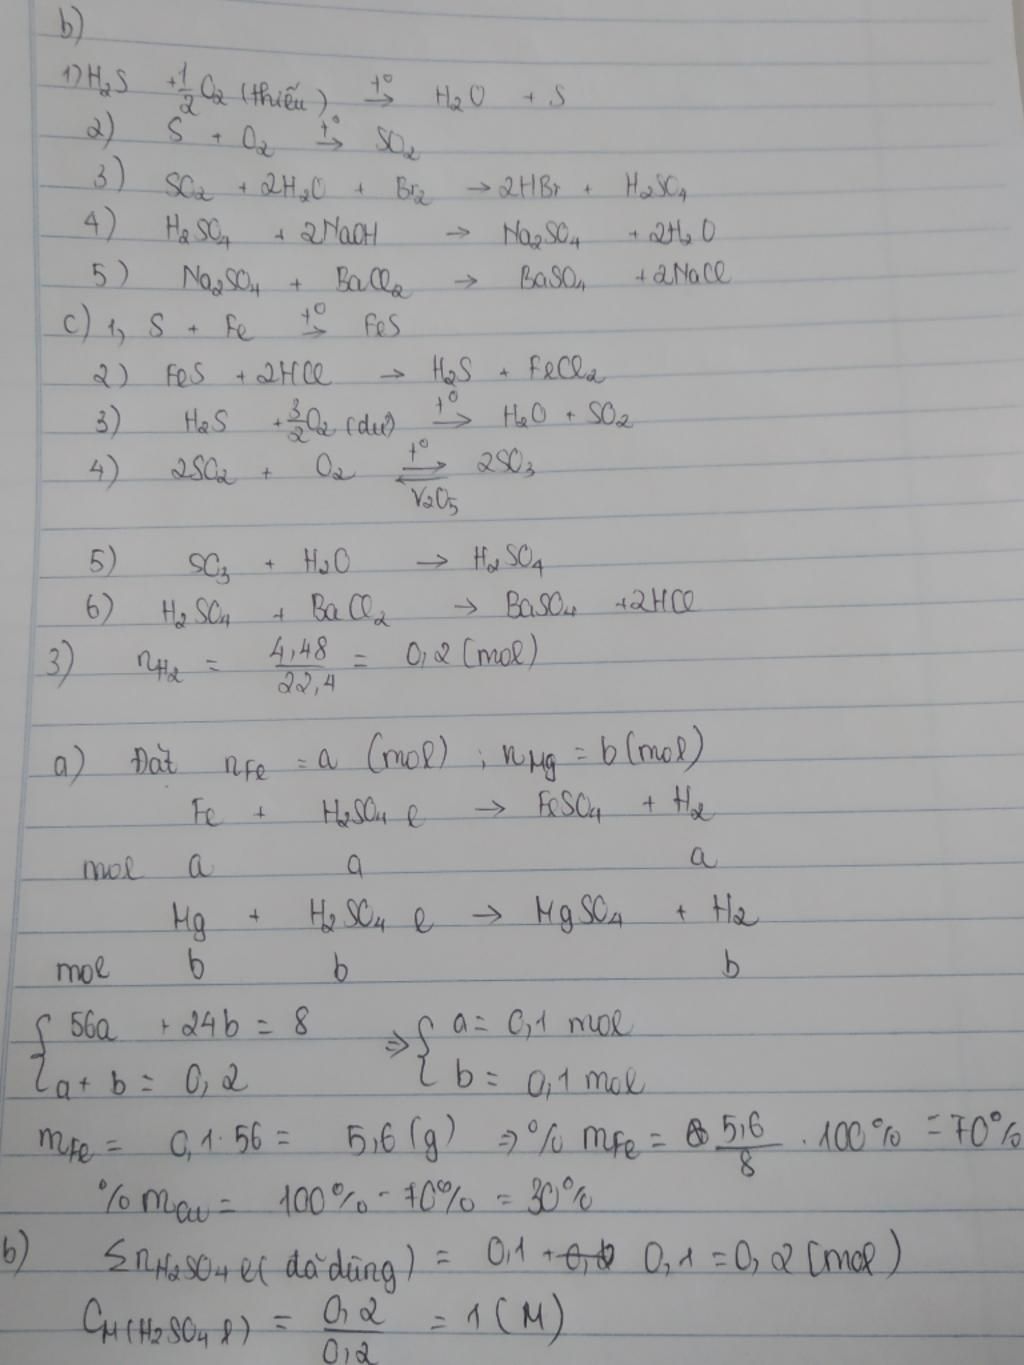 b)
1) H₂S + 1/2 O₂ (thiếu) t° → H₂O + S
2) S + O₂ t° → SO₂
3) SO₂ + 2H₂O + Br₂ → 2HBr + H₂SO₄
4) H₂SO₄ + 2NaOH → Na₂SO₄ + 2H₂O
5) Na₂SO₄ + BaCl₂ → BaSO₄ + 2NaCl
c) 1, S + Fe t° → FeS
2) FeS + 2HCl → H₂S + FeCl₂
3) H₂S + 3/2 O₂ (dư) t° → H₂O + SO₂
4) 2SO₂ + O₂ t° ⇌ V₂O₅ 2SO₃
5) SO₃ + H₂O → H₂SO₄
6) H₂SO₄ + BaCl₂ → BaSO₄ + 2HCl
3) nH₂ = 4,48/22,4 = 0,2 (mol)
a) Đặt nFe = a (mol) ; nMg = b (mol)
Fe + H₂SO₄ l → FeSO₄ + H₂
mol a a a
Mg + H₂SO₄ l → MgSO₄ + H₂
mol b b b
{ 56a + 24b = 8 ⇒ { a = 0,1 mol
a + b = 0,2 b = 0,1 mol
mFe = 0,1 . 56 = 5,6 (g) ⇒ % mFe = 5,6/8 . 100% = 70%
% mCu = 100% - 70% = 30%
b) ΣnH₂SO₄ l (đã dùng) = 0,1 + 0,1 = 0,2 (mol)
CM(H₂SO₄ l) = 0,2/0,2 = 1 (M)